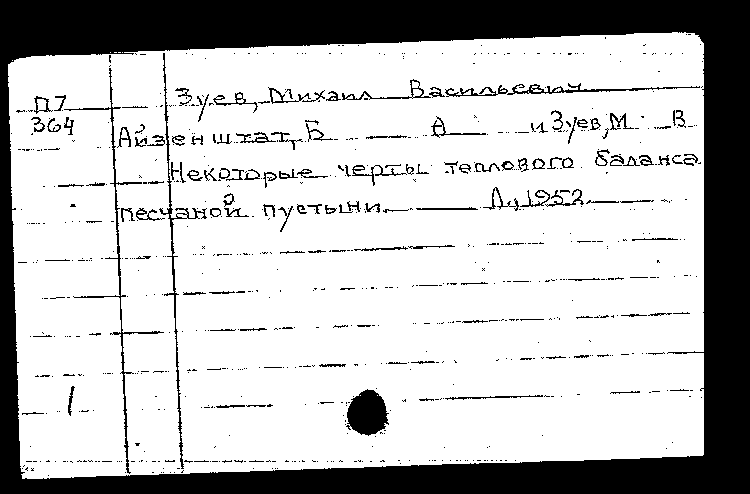 П7
364
Зуев, Михаил Васильевич
Айзенштат, Б А и Зуев, М В
Некоторые черты теплового баланса
песчаной пустыни. Л., 1952.
1